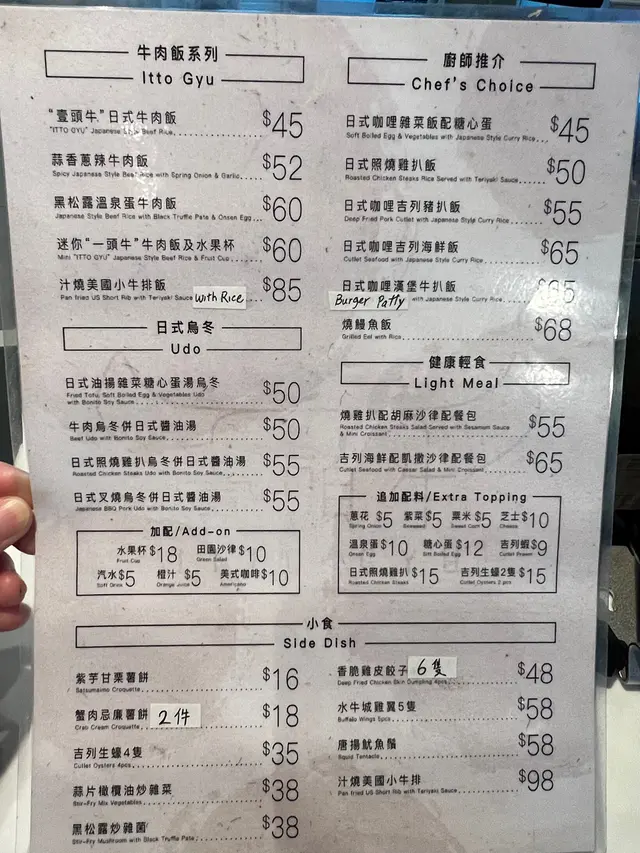 牛肉飯系列
Itto Gyu
"壹頭牛"日式牛肉飯 $45
"ITTO GYU" Japanese Style Beef Rice
蒜香蔥辣牛肉飯 $52
Spicy Japanese Style Beef Rice with Spring Onion & Garlic
黑松露溫泉蛋牛肉飯 $60
Japanese Style Beef Rice with Black Truffle Pate & Onsen Egg
迷你"一頭牛"牛肉飯及水果杯 $60
Mini "ITTO GYU" Japanese Style Beef Rice & Fruit Cup
汁燒美國小牛排飯 $85
Pan fried US Short Rib with Teriyaki Sauce with Rice
日式烏冬
Udo
日式油揚雜菜糖心蛋湯烏冬 $50
Fried Tofu, Soft Boiled Egg & Vegetables Udo
with Bonito Soy Sauce
牛肉烏冬併日式醬油湯 $50
Beef Udo with Bonito Soy Sauce
日式照燒雞扒烏冬併日式醬油湯 $55
Roasted Chicken Steaks Udo with Bonito Soy Sauce
日式叉燒烏冬併日式醬油湯 $55
Japanese BBQ Pork Udo with Bonito Soy Sauce
加配/Add-on
水果杯 $18 田園沙律 $10
Fruit Cup Green Salad
汽水 $5 橙汁 $5 美式咖啡 $10
Soft Drink Orange Juice Americano
廚師推介
Chef's Choice
日式咖哩雜菜飯配糖心蛋 $45
Soft Boiled Egg & Vegetables with Japanese Style Curry Rice
日式照燒雞扒飯 $50
Roasted Chicken Steaks Rice Served with Teriyaki Sauce
日式咖哩吉列豬扒飯 $55
Deep Fried Pork Cutlet with Japanese Style Curry Rice
日式咖哩吉列海鮮飯 $65
Cutlet Seafood with Japanese Style Curry Rice
日式咖哩漢堡牛扒飯
Burger Patty with Japanese Style Curry Rice
燒鰻魚飯 $68
Grilled Eel with Rice
健康輕食
Light Meal
燒雞扒配胡麻沙律配餐包 $55
Roasted Chicken Steaks Salad Served with Sesamum Sauce
& Mini Croissant
吉列海鮮配凱撒沙律配餐包 $65
Cutlet Seafood with Caesar Salad & Mini Croissant
追加配料/Extra Topping
蔥花 $5 紫菜 $5 粟米 $5 芝士 $10
Spring Onion Seaweed Sweet Corn Cheese
溫泉蛋 $10 糖心蛋 $12 吉列蝦 $9
Onsen Egg Soft Boiled Egg Cutlet Prawn
日式照燒雞扒 $15 吉列生蠔2隻 $15
Roasted Chicken Steaks Cutlet Oysters 2 pcs
小食
Side Dish
紫芋甘栗薯餅 $16
Satsumaimo Croquette
蟹肉忌廉薯餅 2件 $18
Crab Cream Croquette
吉列生蠔4隻 $35
Cutlet Oysters 4pcs
蒜片橄欖油炒雜菜 $38
Stir-Fry Mix Vegetables
黑松露炒雜菌 $38
Stir-Fry Mushroom with Black Truffle Pate
香脆雞皮餃子 6隻 $48
Deep Fried Chicken Skin Dumpling 4pcs
水牛城雞翼5隻 $58
Buffalo Wings 5pcs
唐揚魷魚鬚 $58
Squid Tentacle
汁燒美國小牛排 $98
Pan fried US Short Rib with Teriyaki Sauce